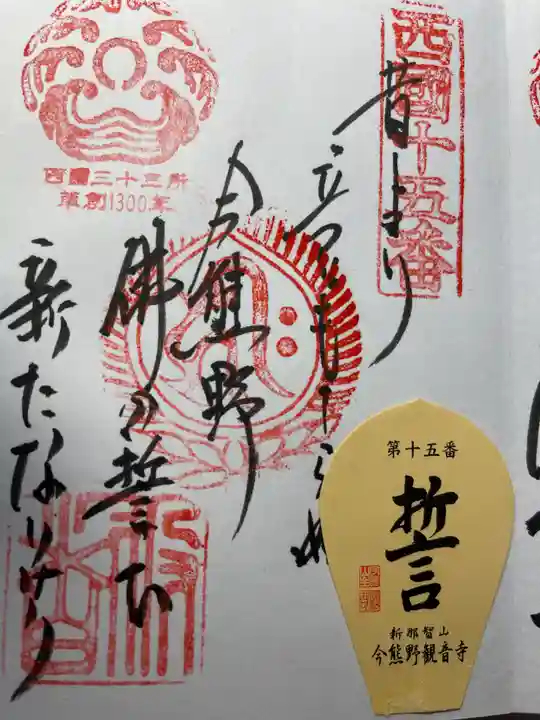 西國十五番
昔より
立つとも
今熊野
佛の誓ひ
新たなりけり
西國三十三所
草創1300年
第十五番
誓
新那智山
今熊野観音寺